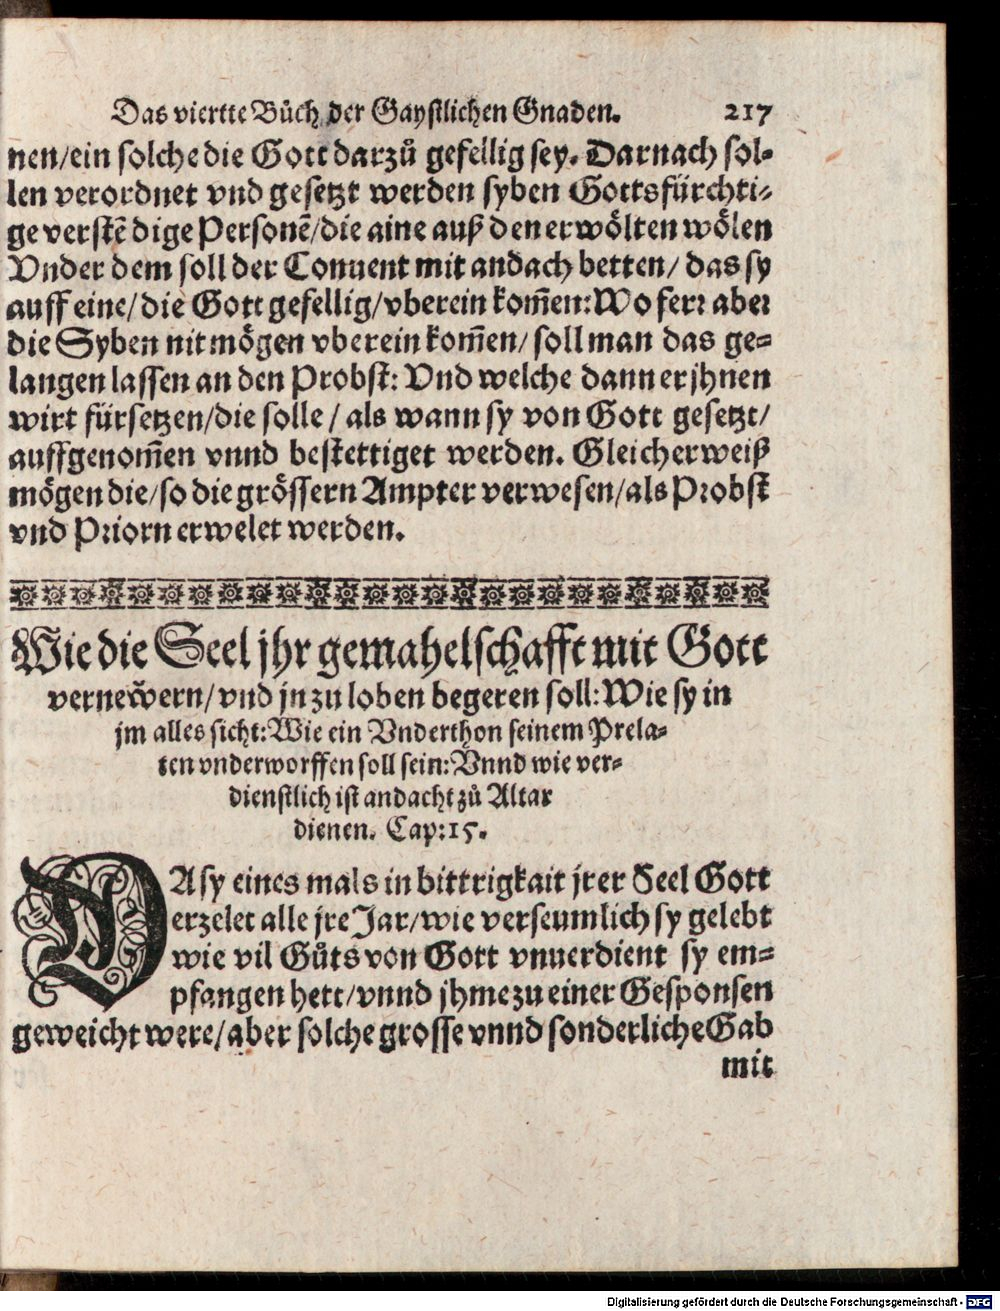 Das viertte Bůch der Gaystlichen Gnaden. 217
nen/ein solche die Gott darzů gefellig sey. Darnach sol-
len verordnet vnd gesetzt werden syben Gottsfürchti-
ge verstẽdige Personẽ/die aine auß den erwölten wölen
Vnder dem soll der Conuent mit andach betten/ das sy
auff eine/die Gott gefellig/vberein kom̃en:Wo ferr aber
die Syben nit mögen vberein kom̃en/ soll man das ge-
langen lassen an den Probst: Vnd welche dann er jhnen
wirt fürsetzen/die solle / als wann sy von Gott gesetzt/
auffgenom̃en vnnd bestettiget werden. Gleicherweiß
mögen die/so die grössern Ampter verwesen/als Probst
vnd Priorn erwelet werden.
Wie die Seel jhr gemahelschafft mit Gott
vernew̃ern/vnd jn zu loben begeren soll:Wie sy in
jm alles sicht:Wie ein Vnderthon seinem Prela-
ten vnderworffen soll sein:Vnnd wie ver-
dienstlich ist andacht zů Altar
dienen. Cap:15.
DA sy eines mals in bittrigkait jrer Seel Gott
erzelet alle jre Jar/wie verseumlich sy gelebt
wie vil Gůts von Gott vnuerdient sy em-
pfangen hett/vnnd jhme zu einer Gesponsen
geweicht were/aber solche grosse vnnd sonderliche Gab
mit
Digitalisierung gefördert durch die Deutsche Forschungsgemeinschaft - DFG